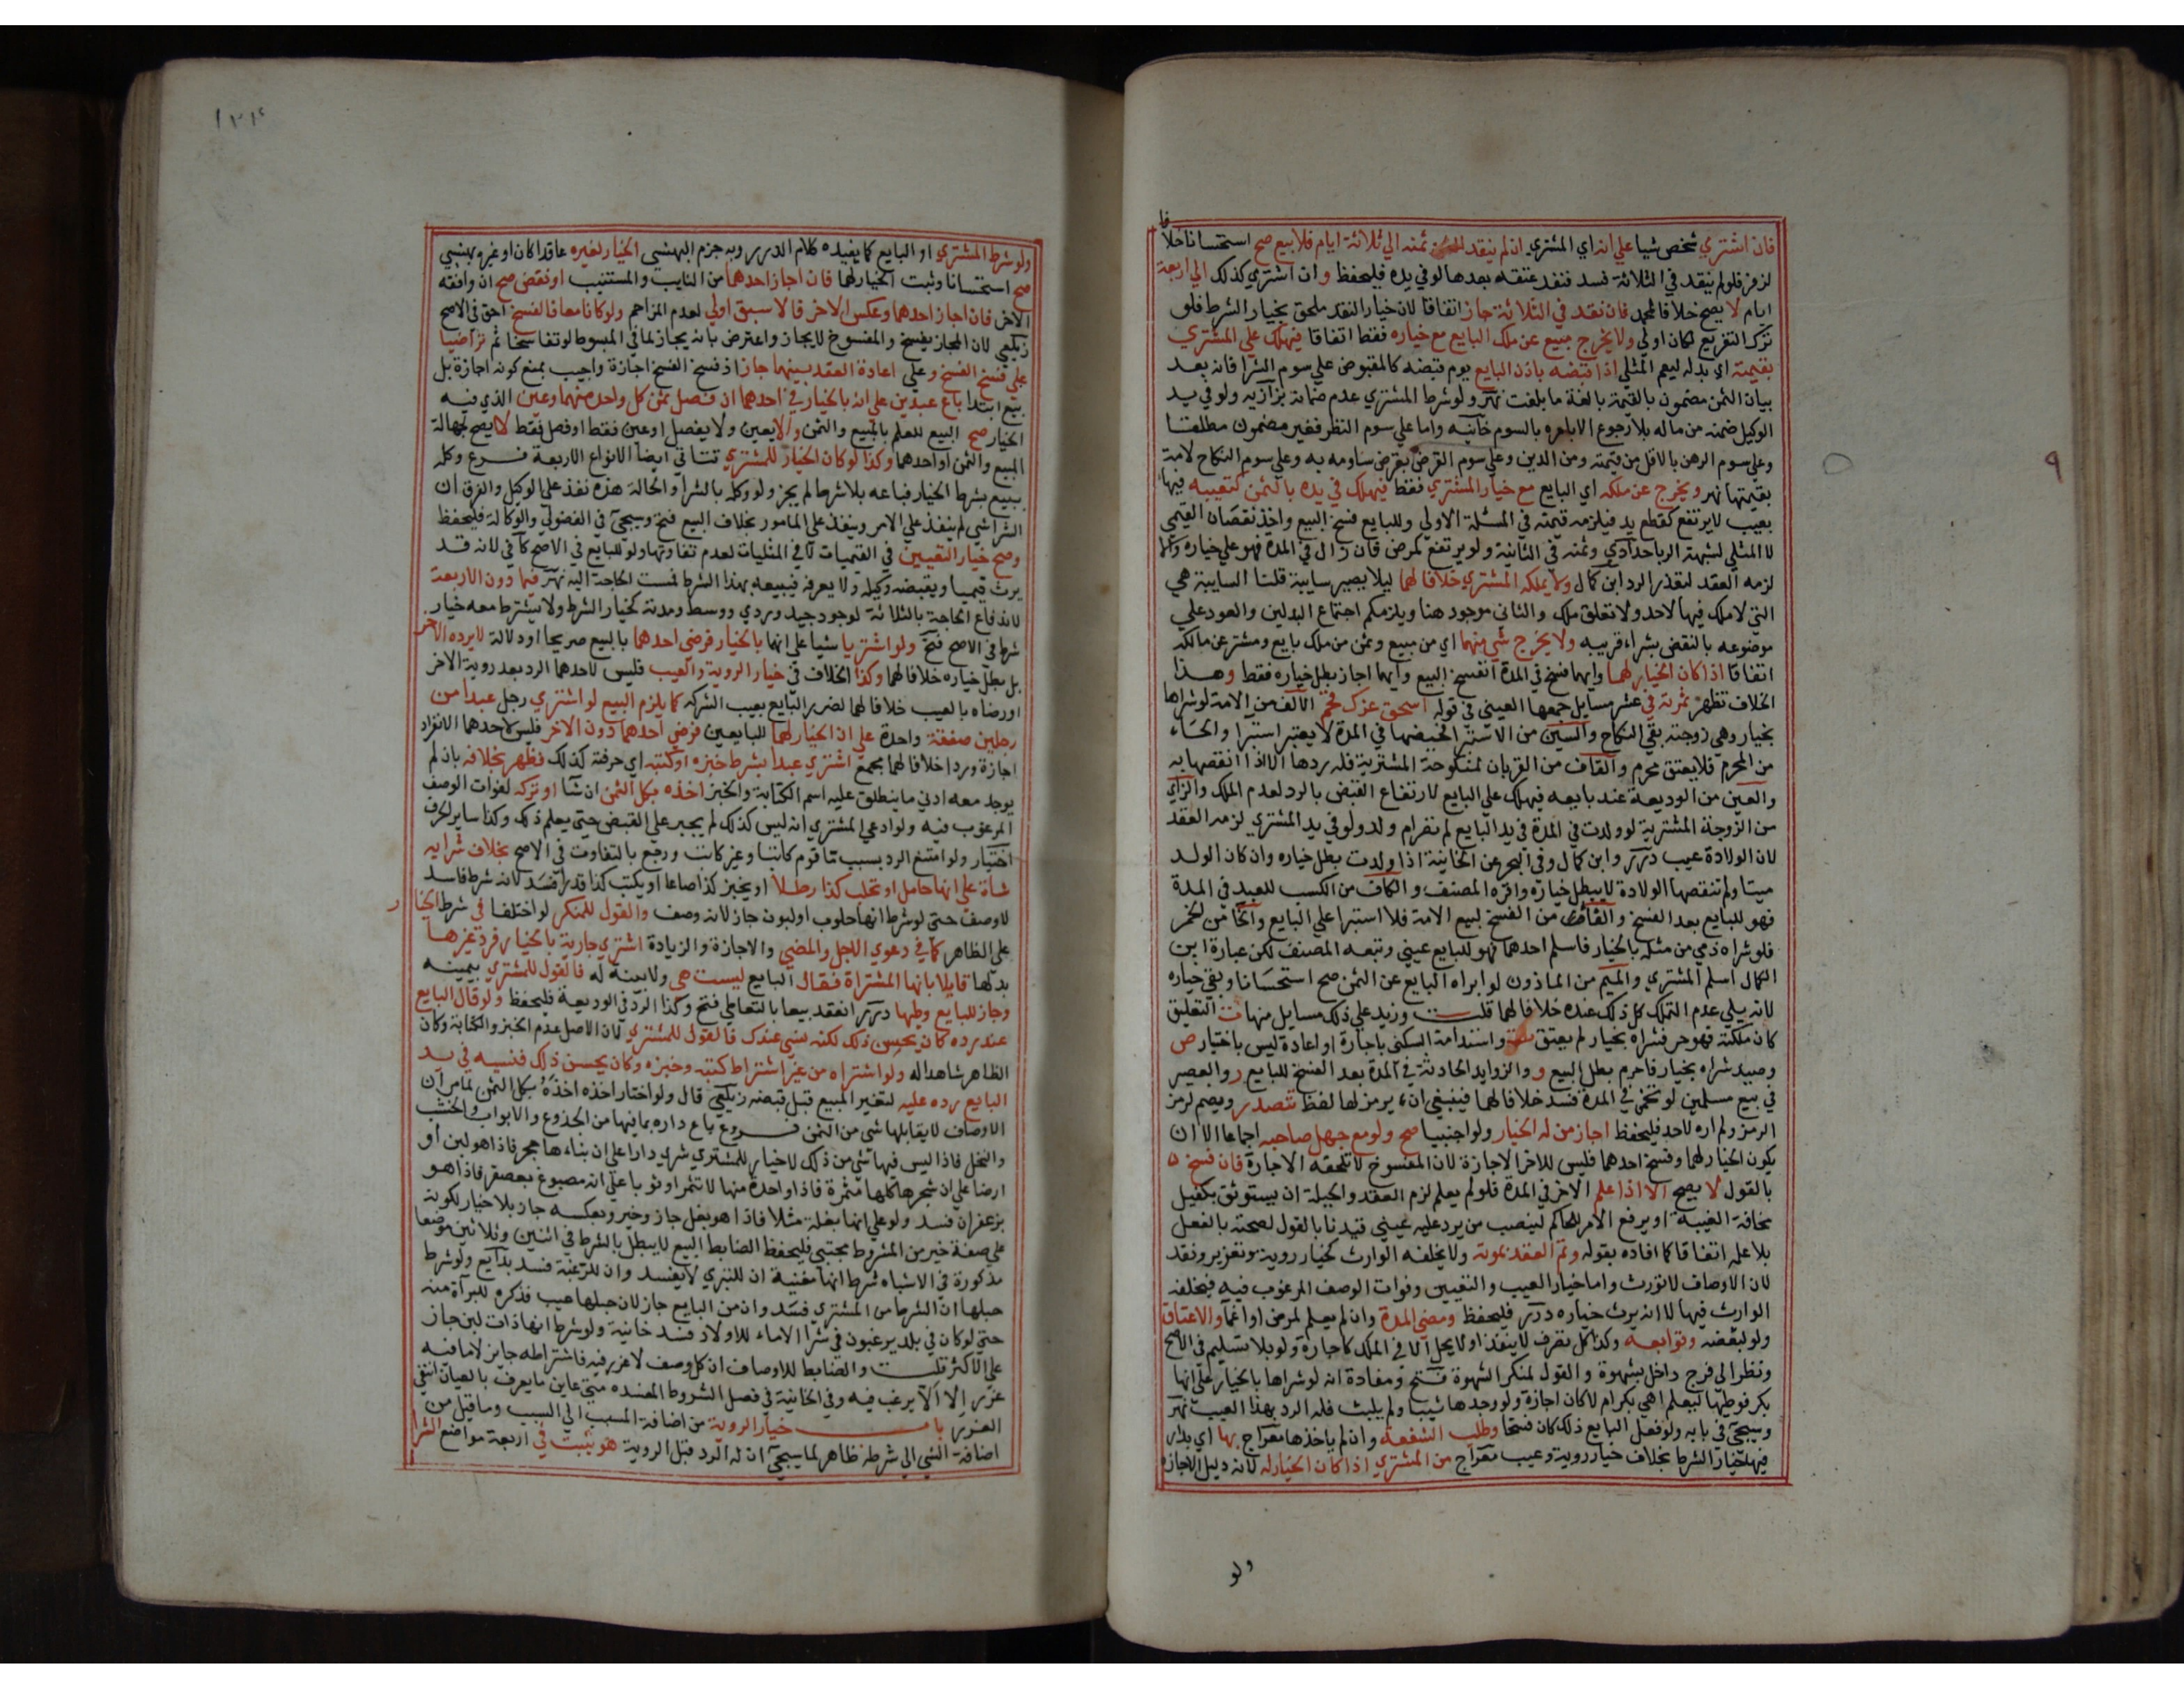 فان اشتري شخص شيا علي انه اي المشتري ان لم ينقد ثمنه الي ثلاثة ايام فلا بيع صح استحسانا خلافا
لزفر فلو لم ينقد في الثلاثة فسد فنفذ عتقه بعدها لو في يده فليحفظ وان اشتري كذلك الي اربعة
ايام لا يصح خلافا لمحمد فان نقد في الثلاثة جاز اتفاقا لان خيار النقد ملحق بخيار الشرط فلو
ترك التفريع لكان اولي ولا يخرج مبيع عن ملك البايع مع خياره فقط اتفاقا فيهلك علي المشتري
بقيمته اي بدله ليعم المثلي اذا قبضه باذن البايع يوم قبضه كالمقبوض علي سوم الشرا فانه بعد
بيان الثمن مضمون بالقيمة بالغة ما بلغت نهر ولو شرط المشتري عدم ضمانه بزازيه ولو في يد
الوكيل ضمنه من ماله بلا رجوع الا بامره بالسوم خانيه واما علي سوم النظر فغير مضمون مطلقا
وعلي سوم الرهن بالاقل من قيمته ومن الدين وعلي سوم القرض بقرض ساومه به وعلي سوم النكاح لامة
بقيمتها نهر ويخرج عن ملكه اي البايع مع خيار المشتري فقط فيهلك في يده بالثمن كتعيبه فيها
بعيب لا يرتفع كقطع يد فيلزمه قيمته في المسئلة الاولي وللبايع فسخ البيع واخذ نقصان القيمي
لا المثلي لشبهة الربا حدادي وثمنه في الثانية ولو يرتفع كمرض فان زال في المدة فهو علي خياره والا
لزمه العقد لتعذر الرد ابن كمال ولا يملكه المشتري خلافا لهما ليلا يصير سايبة قلنا السايبة هي
التي لا ملك فيها لاحد ولا تعلق ملك والثاني موجود هنا ويلزمكم اجتماع البدلين والعود علي
موضوعه بالنقض بشراء قريبه ولا يخرج شي منهما اي من مبيع وثمن من ملك بايع ومشتر عن مالكه
اتفاقا اذا كان الخيار لهما وايهما فسخ في المدة انفسخ البيع وايهما اجاز بطل خياره فقط وهذا
الخلاف تظهر ثمرته في عشر مسايل جمعها العيني في قوله اسحق عزك فخم الالف من الامة لو شراها
بخيار وهي زوجته بقي النكاح والسين من الاستبرا فحيضها في المدة لا يعتبر استبرا والحاء
من المحرم فلا يعتق محرم والقاف من القربان لمنكوحة المشترية فله ردها الا اذا انقصها به
والعين من الوديعة عند بايعه فيهلك علي البايع لارتفاع القبض بالرد لعدم الملك والزاي
من الزوجة المشترية لو ولدت في المدة في يد البايع لم تصر ام ولد ولو في يد المشتري لزمه العقد
لان الولادة عيب درر وابن كمال وفي البحر عن الخانية اذا ولدت بطل خياره وان كان الولد
ميتا ولم تنقصها الولادة لا يبطل خياره واقره المصنف والكاف من الكسب للعبد في المدة
فهو للبايع بعد الفسخ والفا من الفسخ لبيع الامة فلا استبرا علي البايع والخا من الخمر
فلو شراه ذمي من مثله بالخيار فاسلم احدهما فهو للبايع عيني وتبعه المصنف لكن عبارة ابن
الكمال اسلم المشتري والميم من الماذون لو ابراه البايع عن الثمن صح استحسانا وبقي خياره
لانه يلي عدم التملك كل ذلك عنده خلافا لهما قلت وزيد علي ذلك مسايل منها ت التعليق
كان ملكته فهو حر فشراه بخيار لم يعتق واستدامة السكني باجارة او اعادة ليس باختيار ص
وصيد شراه بخيار فاحرم بطل البيع و والزوايد الحادثة في المدة بعد الفسخ للبايع ر والعصير
في بيع مسلمين لو تخمر في المدة فسد خلافا لهما فينبغي ان يرمز لها لفظ تتصدر ويضم لرمز
الرمز ولم اره لاحد فليحفظ اجاز من له الخيار ولو اجنبيا صح ولو مع جهل صاحبه اجماعا الا ان
يكون الخيار لهما وفسخ احدهما فليس للاخر الاجازة لان المفسوخ لا تلحقه الاجارة فان فسخ
بالقول لا يصح الا اذا علم الاخر في المدة فلو لم يعلم لزم العقد والحيلة ان يستوثق بكفيل
مخافة الغيبة او يرفع الامر للحاكم لينصب من يرد عليه عيني قيدنا بالقول لصحته بالفعل
بلا علمه اتفاقا كما افاده بقوله وتم العقد بموته ولا يخلفه الوارث كخيار روية وتغرير ونقد
لان الاوصاف لا تورث واما خيار العيب والتعيين وفوات الوصف المرغوب فيه فيخلفه
الوارث فيها لا انه يرث خياره درر فليحفظ ومضي المدة وان لم يعلم لمرض او اغما والاعتاق
ولو لبعضه وتوابعه وكذا كل تصرف لا ينفذ او لا يحل الا في الملك كاجارة ولو بلا تسليم في الاصح
ونظر الي فرج داخل بشهوة والقول لمنكر الشهوة فتح ومفادة انه لو شراها بالخيار علي انها
بكر فوطيها ليعلم اهي بكر ام لا كان اجازة ولو وجدها ثيبا ولم يلبث فله الرد بهذا العيب نهر
وسيجي في بابه ولو فعل البايع ذلك كان فسخا وطلب الشفعة وان لم ياخذها معراج بها اي بدار
فيها خيار الشرط بخلاف خيار روية وعيب معراج من المشتري اذا كان الخيار له لانه دليل الاجازة
ولو
ولو شرط المشتري او البايع كما يفيده كلام الدرر وبه جزم البهنسي الخيار لغيره عاقدا كان او غيره بهنسي
صح استحسانا وثبت الخيار لهما فان اجاز احدهما من النايب والمستنيب او نقض صح ان وافقه
الاخر فان اجاز احدهما وعكس الاخر فالاسبق اولي لعدم المزاحم ولو كانا معا فالفسخ احق في الاصح
زيلعي لان المجاز يفسخ والمفسوخ لا يجاز واعترض بانه يجاز لما في المبسوط لو تفاسخا ثم تراضيا
علي فسخ الفسخ وعلي اعادة العقد بينهما جاز اذ فسخ الفسخ اجازة واجيب بمنع كونه اجازة بل
بيع ابتدا باع عبدين علي انه بالخيار في احدهما ان فصل ثمن كل واحد منهما وعين الذي فيه
الخيار صح البيع للعلم بالمبيع والثمن والا يعين ولا يفصل او عين فقط او فصل فقط لا يصح لجهالة
المبيع والثمن او احدهما وكذا لو كان الخيار للمشتري تتاتي ايضا الانواع الاربعة فرع وكله
ببيع بشرط الخيار فباعه بلا شرط لم يجز ولو وكله بالشرا والحالة هذه نفذ علي الوكيل والفرق ان
الشرا متي لم ينفذ علي الامر وينفذ علي المامور بخلاف البيع فتح وسيجي في الفضولي والوكالة فليحفظ
وصح خيار التعيين في القيميات لا في المثليات لعدم تفاوتها ولو للبايع في الاصح كافي لانه قد
يرث قيميا ويقبضه وكيله ولا يعرفه فيبيعه بهذا الشرط فمست الحاجة اليه نهر فيما دون الاربعة
لاندفاع الحاجة بالثلاثة لوجود جيد وردي ووسط ومدته كخيار الشرط ولا يشترط معه خيار
شرط في الاصح فتح ولو اشتريا شيا علي انهما بالخيار فرضي احدهما بالبيع صريحا او دلالة لا يرده الاخر
بل بطل خياره خلافا لهما وكذا الخلاف في خيار الروية والعيب فليس لاحدهما الرد بعد روية الاخر
او رضاه بالعيب خلافا لهما لضرر البايع بعيب الشركه كما يلزم البيع لو اشتري رجل عبدا من
رجلين صفقة واحدة علي ان الخيار لهما للبايعين فرضي احدهما دون الاخر فليس لاحدهما الانفراد
اجازة وردا خلافا لهما مجمع اشتري عبدا بشرط خبزه او كتبه اي حرفته كذلك فظهر بخلافه بان لم
يوجد معه ادني ما ينطلق عليه اسم الكتابة والخبز اخذه بكل الثمن ان شا او تركه لفوات الوصف
المرغوب فيه ولو ادعي المشتري انه ليس كذلك لم يجبر علي القبض حتي يعلم ذلك وكذا ساير الحرف
اختيار ولو امتنع الرد بسبب ما قوم كاتبا وغير كاتب ورجع بالتفاوت في الاصح بخلاف شرايه
شاة علي انها حامل او تحلب كذا رطلا او يخبز كذا صاعا او يكتب كذا قدرا فسد لانه شرط فاسد
لا وصف حتي لو شرط انها حلوب او لبون جاز لانه وصف والقول للمنكر لو اختلفا في شرط الخيار
علي الظاهر كما في دعوي الاجل والمضي والاجازة والزيادة اشتري جارية بالخيار فرد غيرها
بدلها قايلا بانها المشتراة فقال البايع ليست هي ولا بينة له فالقول للمشتري بيمينه
وجاز للبايع وطيها درر انعقد بيعا بالتعاطي فتح وكذا الرد في الوديعة فليحفظ ولو قال البايع
عند رده كان يحسن ذلك لكنه نسي عندك فالقول للمشتري لان الاصل عدم الخبز والكتابة وكان
الظاهر شاهدا له ولو اشتراه من غير اشتراط كتبه وخبزه وكان يحسن ذلك فنسيه في يد
البايع رده عليه لتغير المبيع قبل قبضه زيلعي قال ولو اختار اخذه اخذه بكل الثمن لما مر ان
الاوصاف لا يقابلها شي من الثمن فروع باع داره بما فيها من الجذوع والابواب والخشب
والنخل فاذا ليس فيها شي من ذلك لا خيار للمشتري شري دارا علي ان بناءها اجر فاذا هو لبن او
ارضا علي ان شجرها كلها مثمرة فاذا واحدة منها لا تثمر او ثوبا علي انه مصبوغ بعصفر فاذا هو
بزعفران فسد ولو علي انها بغلة مثلا فاذا هو بغل جاز وخير وبعكسه جاز بلا خيار لكونه
علي صفة خير من المشروط مجتبي فليحفظ الضابط البيع لا يبطل بالشرط في اثنين وثلاثين موضعا
مذكورة في الاشباه شرط انها مغنية ان للتبري لا يفسد وان للرغبة فسد بدايع ولو شرط
حبلها ان الشرط من المشتري فسد وان من البايع جاز لان حبلها عيب فذكره للبرآة منه
حتي لو كان في بلد يرغبون في شرا الاماء للاولاد فسد خانية ولو شرط انها ذات لبن جاز
علي الاكثر قلت والضابط للاوصاف ان كل وصف لا غرر فيه فاشتراطه جايز لا ما فيه
غرر الا الا يرغب فيه وفي الخانية في فصل الشروط المفسده متي عاين ما يعرف بالعيان انتفي
الغرر باب خيار الروية من اضافة المسبب الي السبب وما قيل من
اضافة الشي الي شرطه ظاهر لما سيجي ان له الرد قبل الروية هو يثبت في اربعة مواضع الشرا